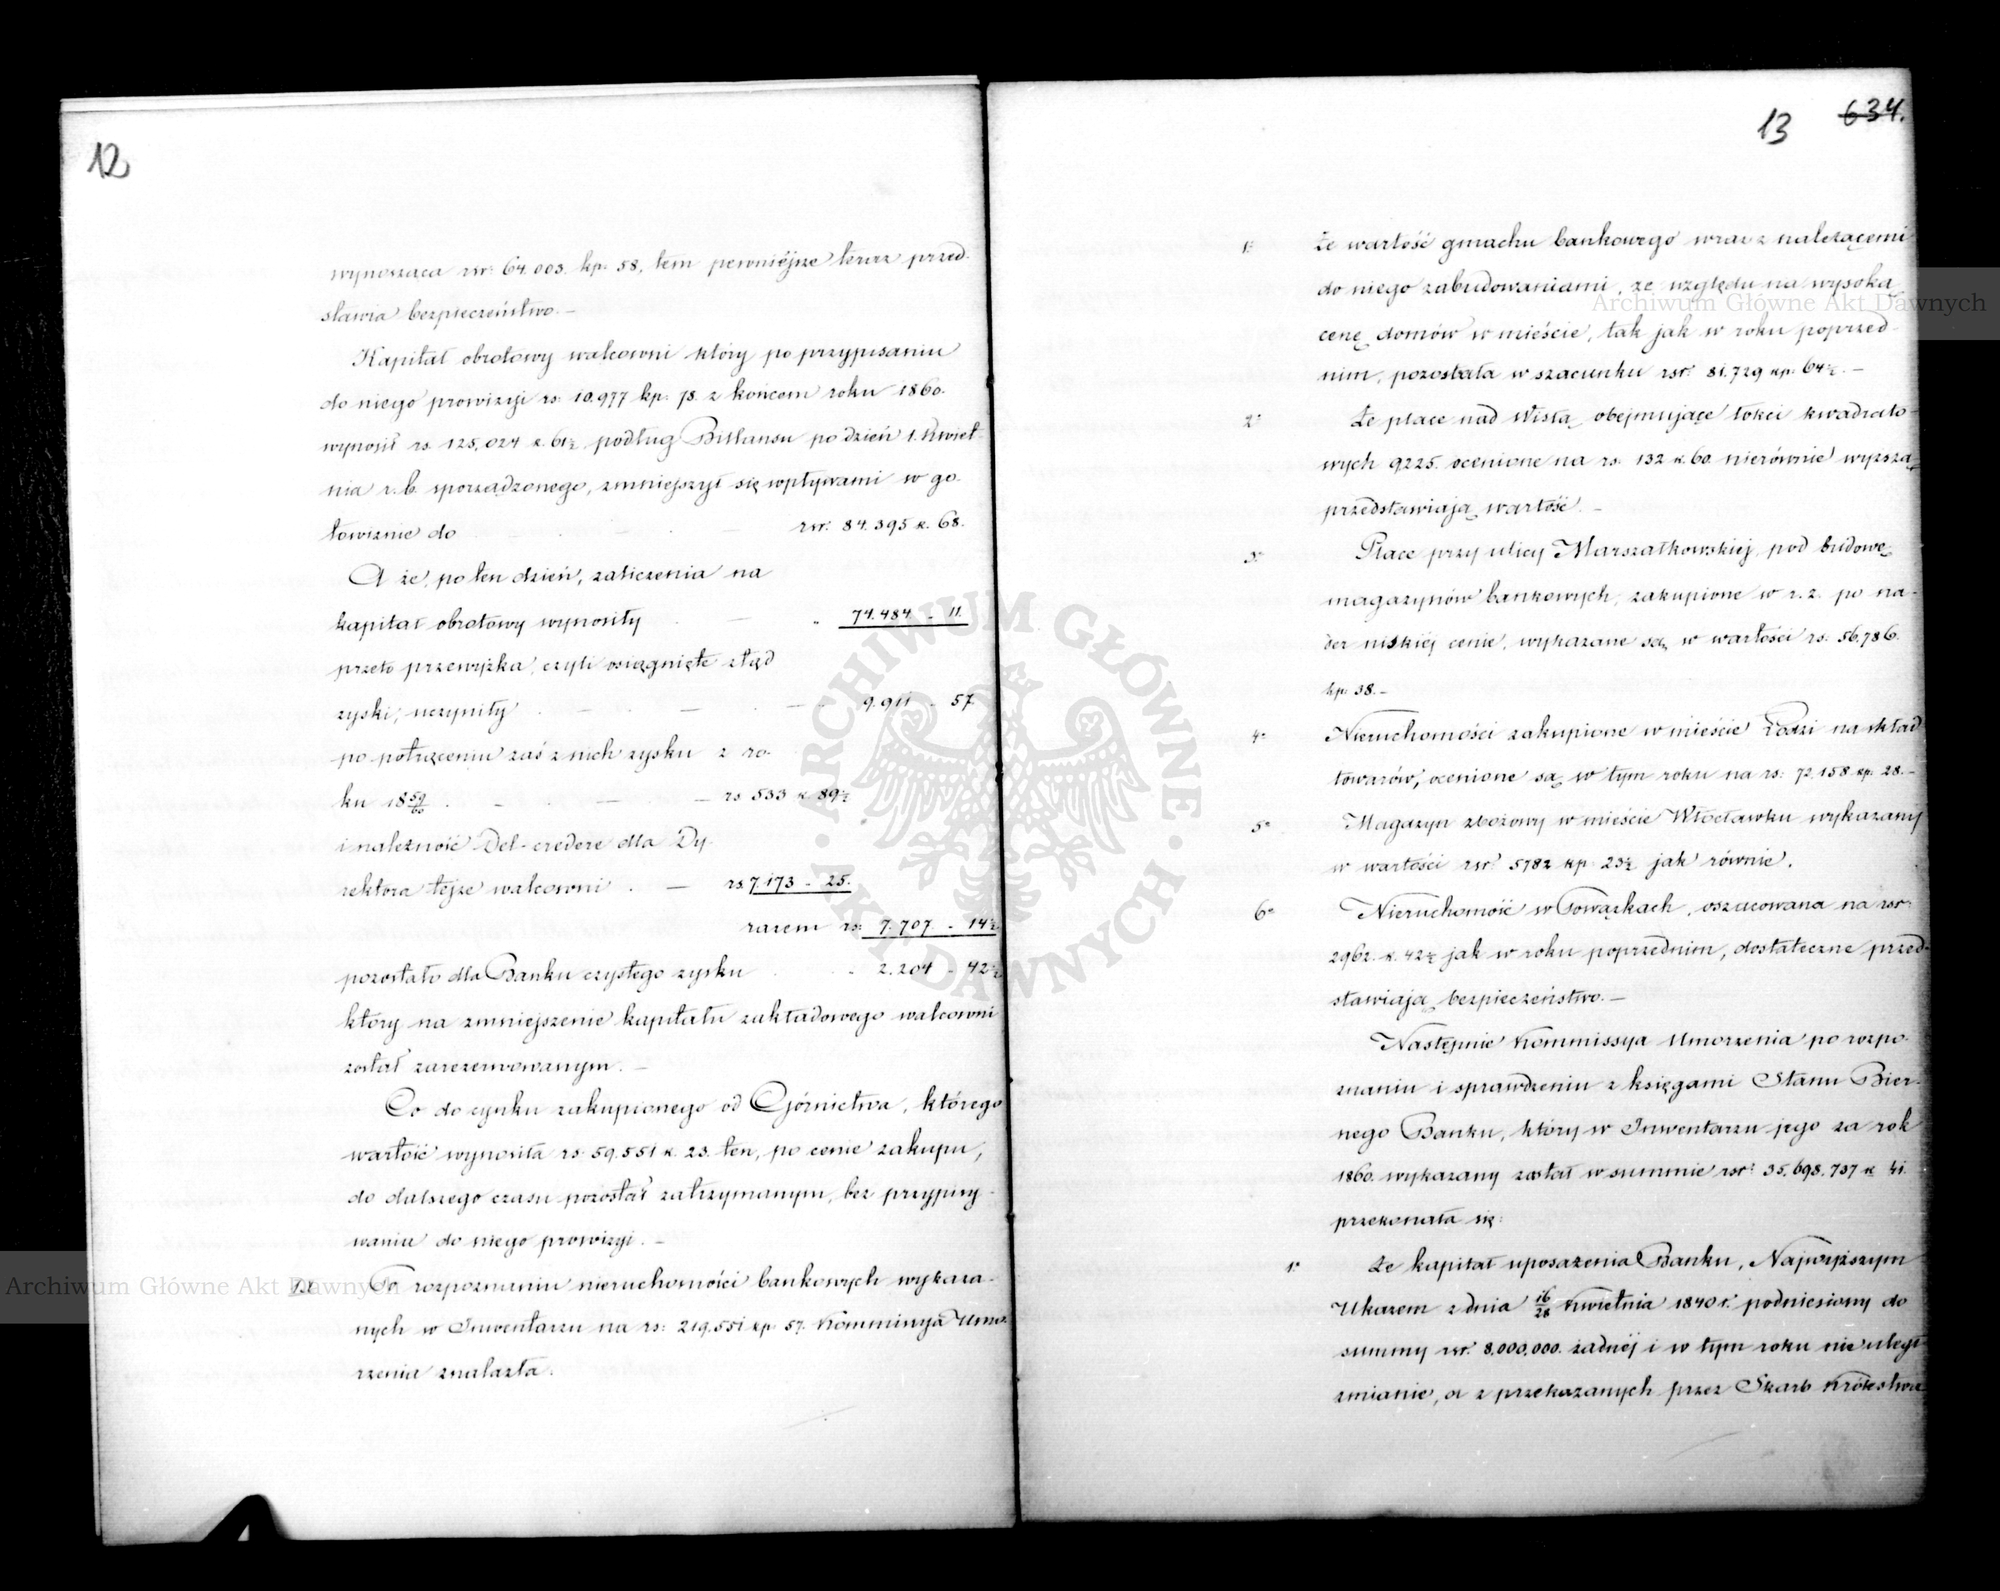 12
wynosząca rsr: 64.003. kp. 58, tem pewniéjsze teraz przed-
stawia bezpieczeństwo. –
Kapitał obrotowy walcowni który po przypisaniu
do niego prowizyi rs: 10.977 kp: 78. z końcem roku 1860.
wynosił rs. 125,024 k. 61½ podług Billansu po dzień 1. Kwiet-
nia r. b. sporządzonego, zmniejszył się wpływami w go-
towiznie do rsr. 84.395 k. 68.
A że, po ten dzień, zaliczenia na
kapitał obrotowy wynosiły „ 74.484 - 11.
przeto przewyżka, czyli osiągnięte ztąd
zyski, uczyniły 9.911 - 57.
po potrąceniu zaś z nich zysku z ro-
ku 18 59/60 . – – rs 533 k 89½
i należność Del-credere dla Dy-
rektora tejże walcowni . – rs 7.173 - 25.
razem rs: 7.707 - 14½
pozostało dla Banku czystego zysku „ 2.204 - 42½
który na zmniejszenie kapitału zakładowego walcowni
został zarezerwowanym. –
Co do cynku zakupionego od Górnictwa, którego
wartość wynosiła rs 59.551 k. 23. ten, po cenie zakupu,
do dalszego czasu pozostał zatrzymanym, bez przypisy-
wania do niego prowizyi. –
Po rozpoznaniu nieruchomości bankowych wykaza-
nych w Inwentarzu na rs: 219.551 kp: 57. Kommissya Umo-
rzenia znalazła.
13 634.
1° że wartość gmachu bankowego wraz z należącemi
do niego zabudowaniami, ze względu na wysoką
cenę domów w mieście, tak jak w roku poprzed-
nim, pozostała w szacunku rsr. 81.729 kp. 64½. –
2° Że place nad Wisłą obejmujące łokci kwadrato-
wych 9225. ocenione na rs. 132 k. 60. nierównie wyższą
przedstawiają wartość. –
3° Place przy ulicy Marszałkowskiéj, pod budowę
magazynów bankowych, zakupione w r. z. po na-
der nizkiéj cenie, wykazane są w wartości rs. 56,786.
kp: 38. –
4° Nieruchomości zakupione w mieście Łodzi na skład
towarów, ocenione są w tym roku na rs: 72.158 kp. 28. –
5° Magazyn zbożowy w mieście Włocławku wykazany
w wartości rsr. 5782 kp 23½ jak równie.
6° Nieruchomość w Powązkach, oszacowana na rsr.
2962. k. 42½ jak w roku poprzednim, dostateczne przed-
stawiają bezpieczeństwo. –
Następnie Kommissya Umorzenia po rozpo-
znaniu i sprawdzeniu z księgami Stanu Bier-
nego Banku, który w Inwentarzu jego za rok
1860. wykazany został w summie rsr: 35.698.737 k 41.
przekonała się:
1° Że kapitał uposażenia Banku, Najwyższym
Ukazem z dnia 16/28 Kwietnia 1840 r. podniesiony do
summy rsr. 8,000,000. żadnéj i w tym roku nie uległ
zmianie, a z przekazanych przez Skarb Królestwa
ARCHIWUM GŁÓWNE AKT DAWNYCH
Archiwum Główne Akt Dawnych
Archiwum Główne Akt Dawnych